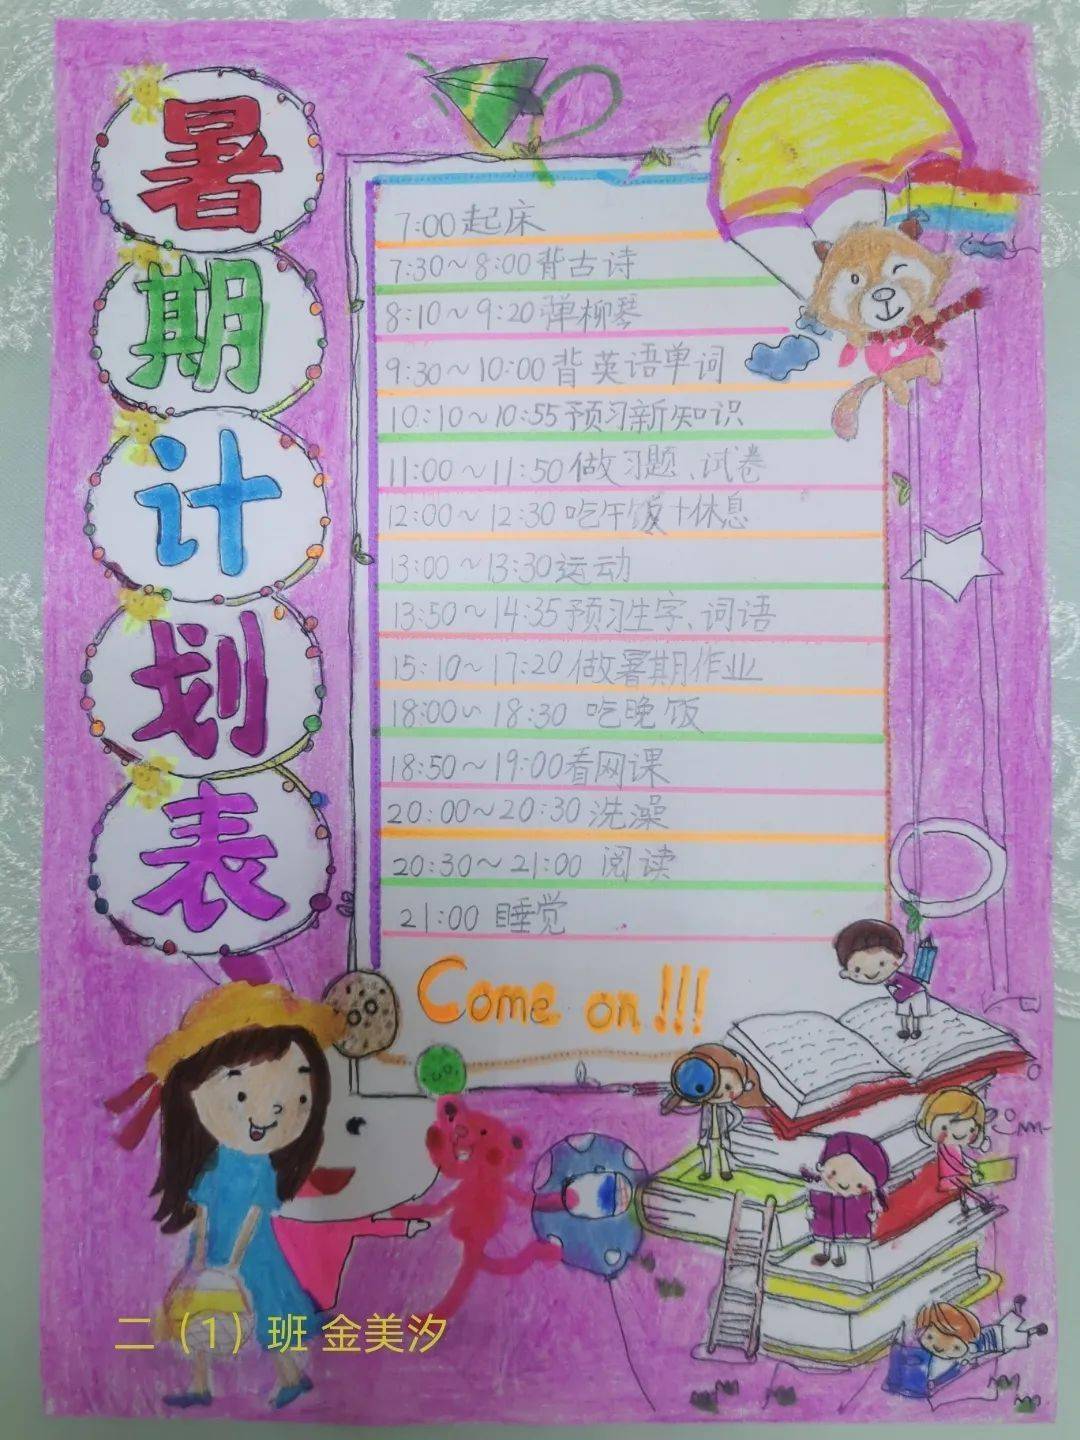 暑期计划表
7:00 起床
7:30~8:00 背古诗
8:10~9:20 弹柳琴
9:30~10:00 背英语单词
10:10~10:55 预习新知识
11:00~11:50 做习题、试卷
12:00~12:30 吃午饭+休息
13:00~13:30 运动
13:50~14:35 预习生字、词语
15:10~17:20 做暑期作业
18:00~18:30 吃晚饭
18:50~19:00 看网课
20:00~20:30 洗澡
20:30~21:00 阅读
21:00 睡觉
Come on!!!
二（1）班 金美汐